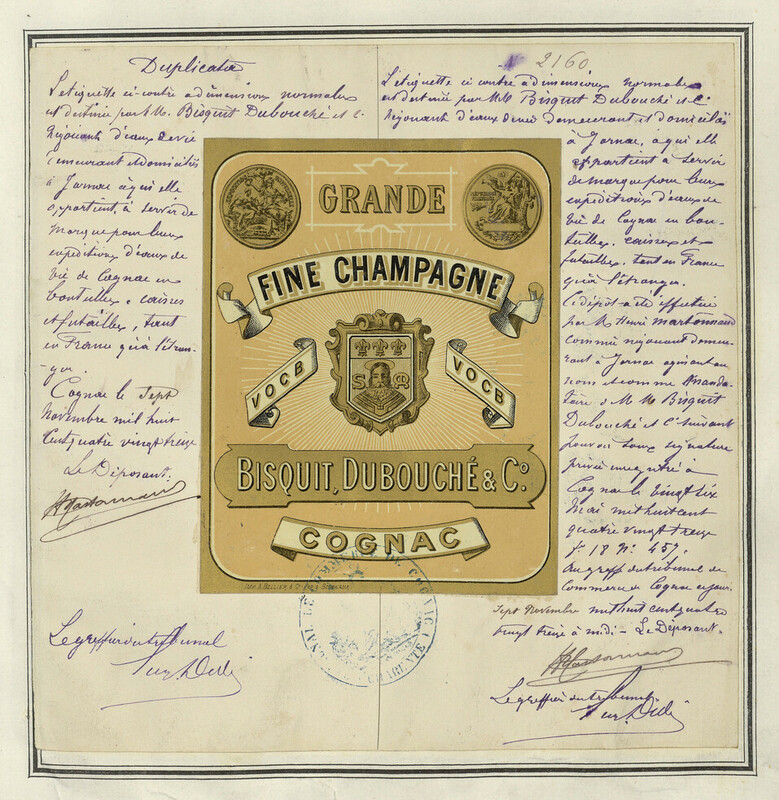 Duplicata
L'étiquette ci-contre a dimensions normales
est destinée par M.M. Bisquit Dubouché et Cie
Négociants d'eaux de vie
demeurant et domiciliés
à Jarnac à qui elle
appartient, à servir de
marque pour leurs
expéditions d'eaux de
vie de Cognac en
bouteilles, caisses
et futailles, tant
en France qu'à l'étran-
ger.
Cognac le Sept
Novembre mil huit
cent quatre vingt treize
Le Déposant.
Le greffier du tribunal
N° 2160
L'étiquette ci contre a dimensions normales
est destinée par MM Bisquit Dubouché et Cie
Négociants d'eaux de vie demeurant et domiciliés
à Jarnac, à qui elle
appartient à servir
de marque pour leurs
expéditions d'eaux de
vie de Cognac en bou-
teilles, caisses et
futailles, tant en France
qu'à l'étranger.
Ce dépôt a été effectué
par M. Henri Martonnaud
comme négociant demeu-
rant à Jarnac agissant au
nom et comme manda-
taire de M M Bisquit
Dubouché et Cie suivant
pouvoir sous signature
privée enregistré à
Cognac le vingt six
Mai mil huit cent
quatre vingt treize
fo 18 No 457.
Au greffe du tribunal de
Commerce de Cognac ce jour
Sept Novembre mil huit cent quatre
vingt treize à midi - Le Déposant.
Le greffier du tribunal
GRANDE
FINE CHAMPAGNE
VOCB
VOCB
BISQUIT, DUBOUCHÉ & Co.
COGNAC